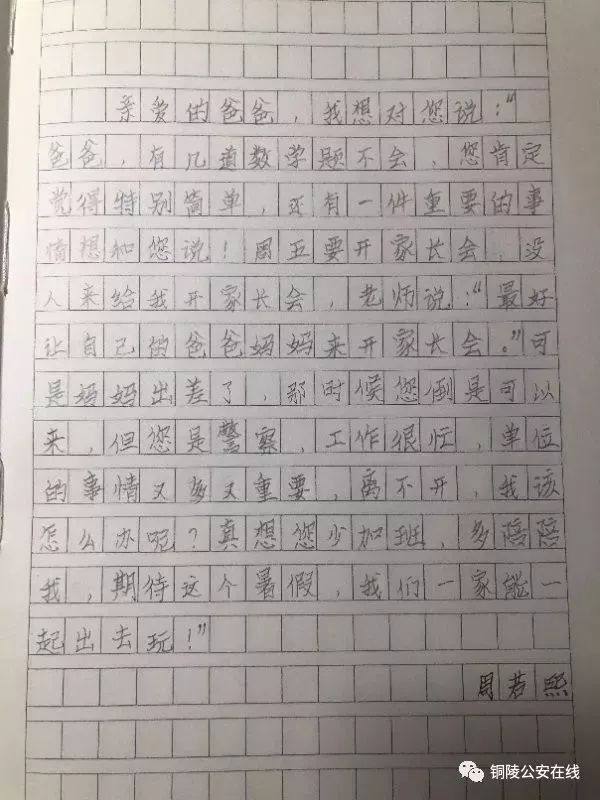 亲爱的爸爸，我想对您说："
爸爸，有几道数学题不会，您肯定
觉得特别简单，还有一件重要的事
情想和您说！周五要开家长会，没
人来给我开家长会，老师说："最好
让自己的爸爸妈妈来开家长会。"可
是妈妈出差了，那时候您倒是可以
来，但您是警察，工作很忙，单位
的事情又多又重要，离不开，我该
怎么办呢？真想您少加班，多陪陪
我，期待这个暑假，我们一家能一
起出去玩！"
周若熙
铜陵公安在线